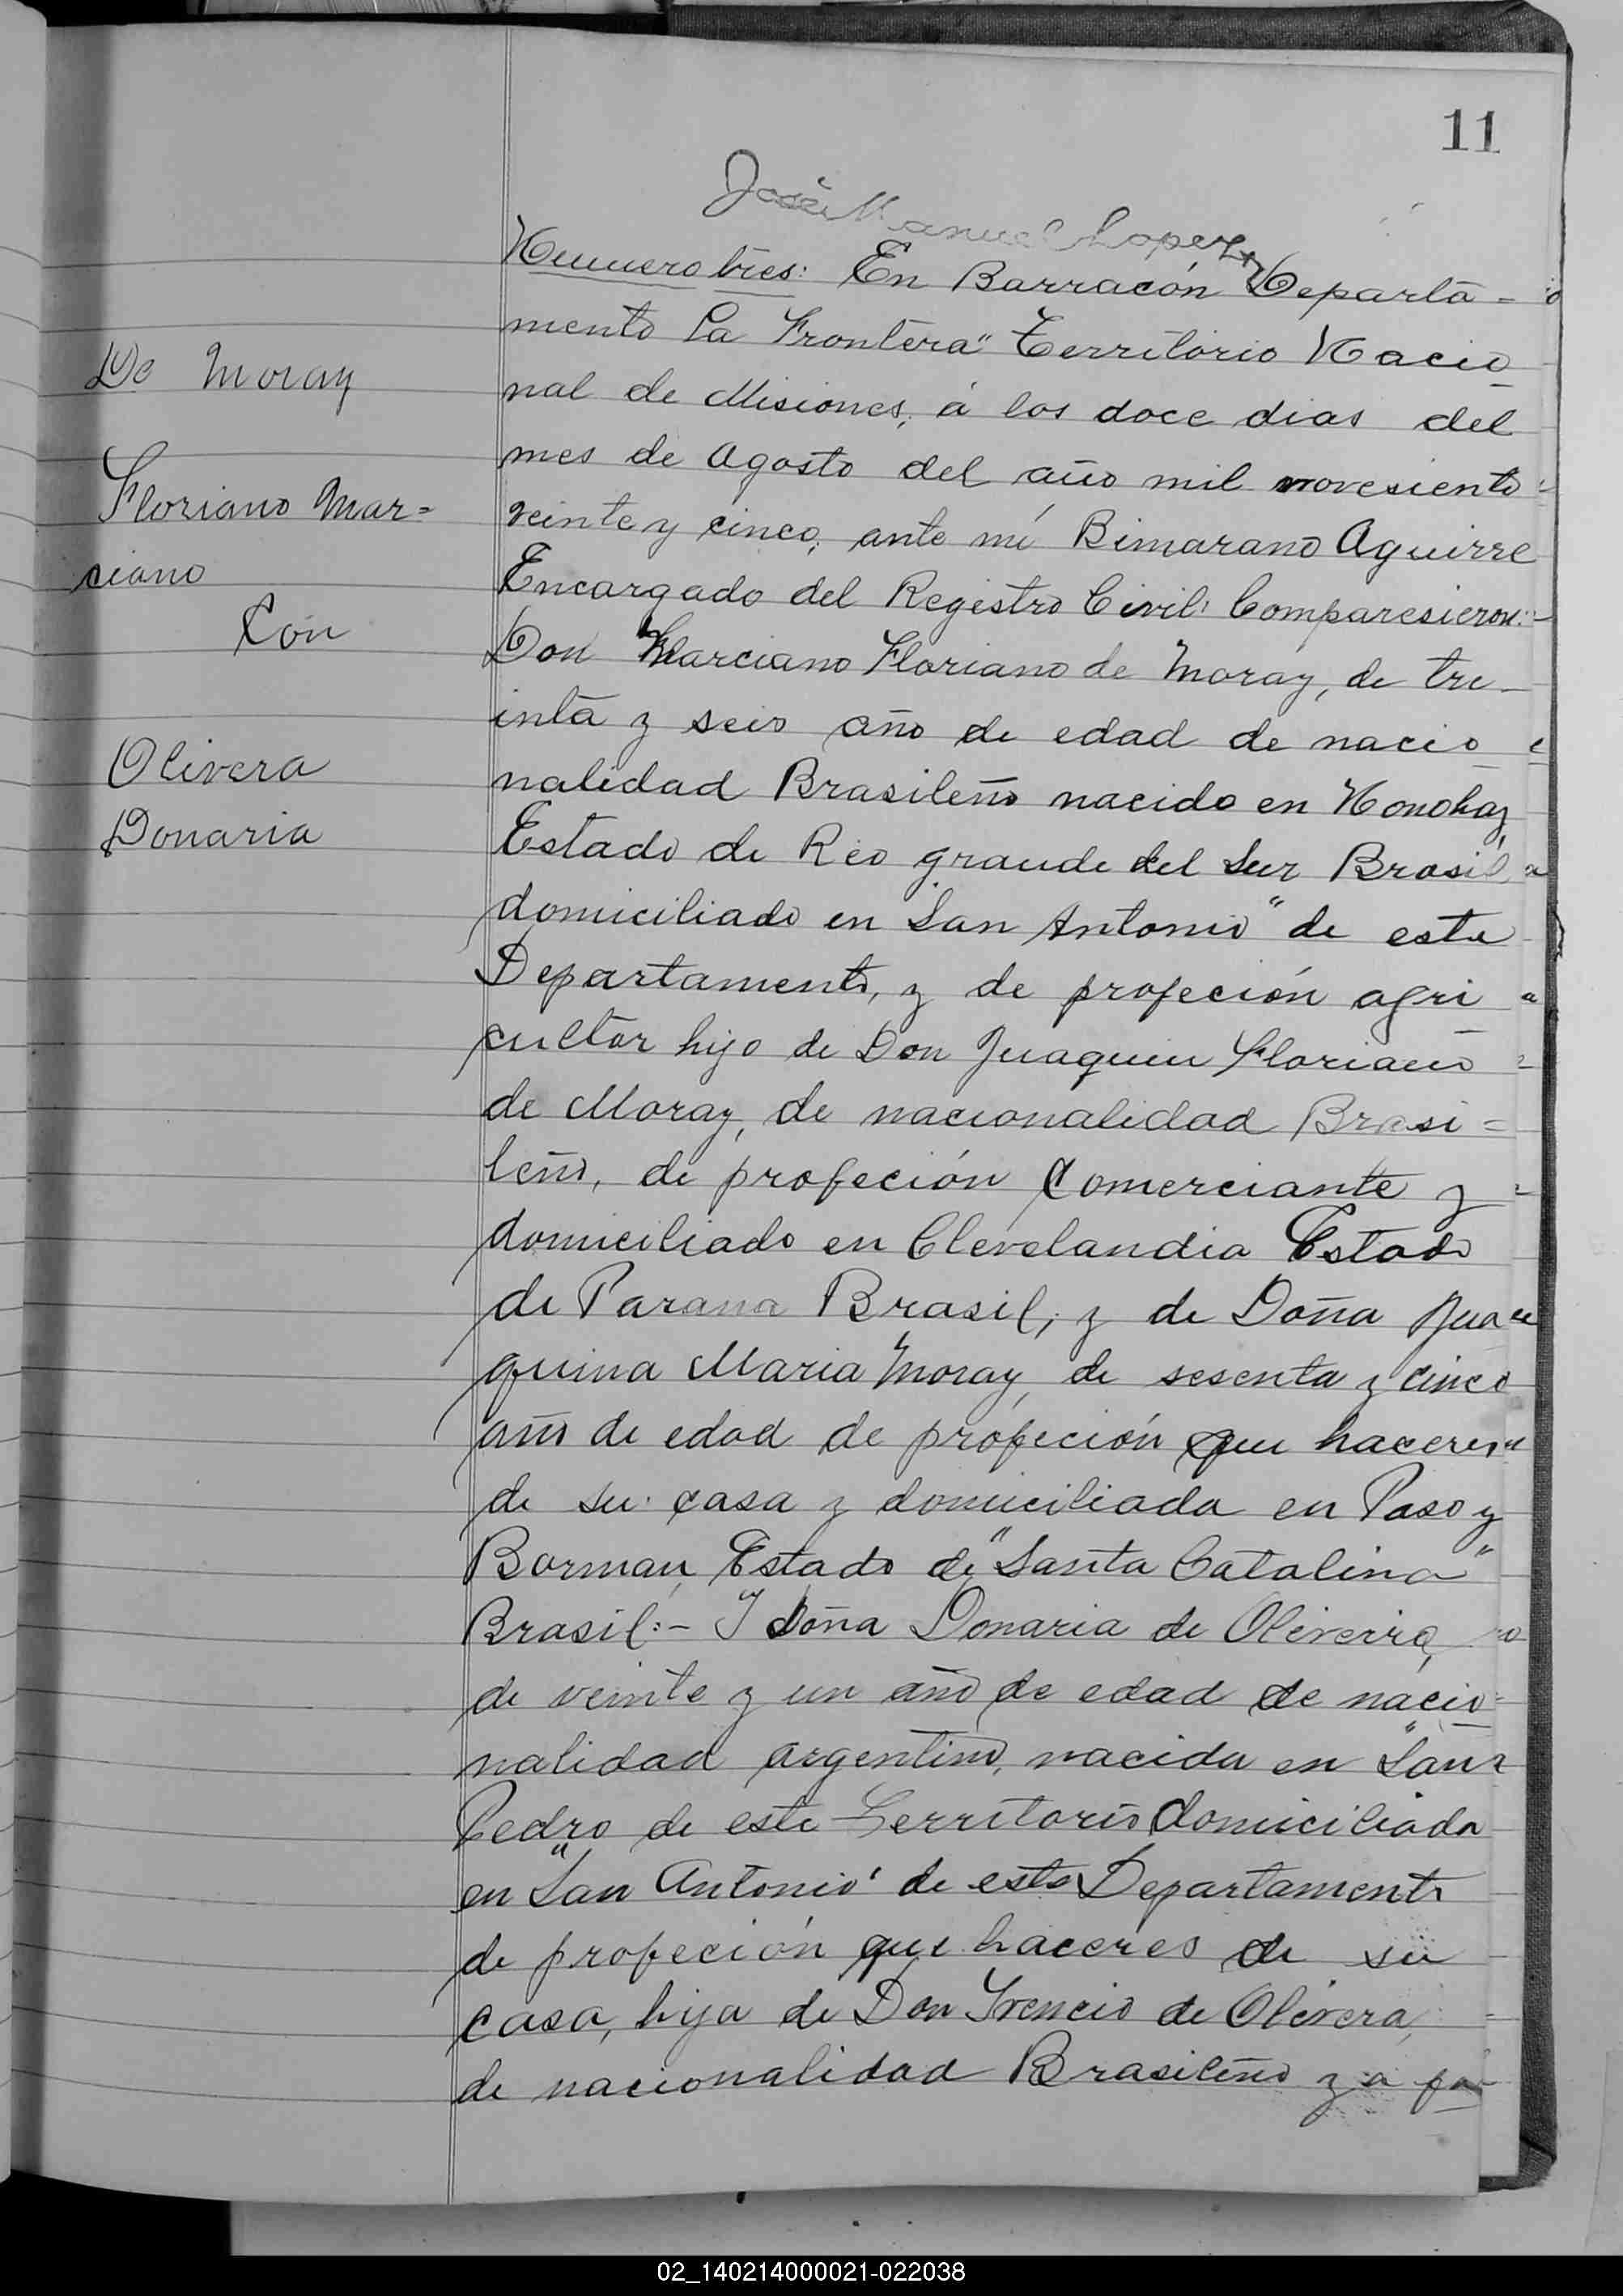 11
José Manuel Lopez
Numero tres: En Barracón Departa-
mento La Frontera" Territorio Nacio
nal de Misiones, á los doce dias del
mes de Agosto del año mil novesiento
veinte y cinco, ante mi Bimarano Aguirre
Encargado del Registro Civil: Comparesieron:-
Don Marciano Floriano de Moray, de tre-
inta y seis año de edad de nacio
nalidad Brasileño nacido en Nonohay
Estado de Rio grande del Sur Brasil
domiciliado en San Antonio" de este
Departamento, y de profeción agri
cultor hijo de Don Juaquin Floriano
de Moray, de nacionalidad Brasi=
leño, de profeción Comerciante y
domiciliado en Clevelandia Estado
de Parana Brasil, y de Doña Jua
quina Maria Moray de sesenta y cinco
años de edad de profeción que haceres
de su casa y domiciliada en Paso y
Borman, Estado de "Santa Catalina"
Brasil:- Y Doña Donaria de Oliveira,
de veinte y un año de edad de nacio
nalidad argentino, nacida en "San
Pedro de este Territorio domiciliada
en "San Antonio' de este Departamento
de profeción que haceres de su
casa, hija de Don Irencio de Olivera,
de nacionalidad Brasileño y a fa
De Moray
Floriano Mar=
ciano
Con
Olivera
Donaria
02_140214000021-022038